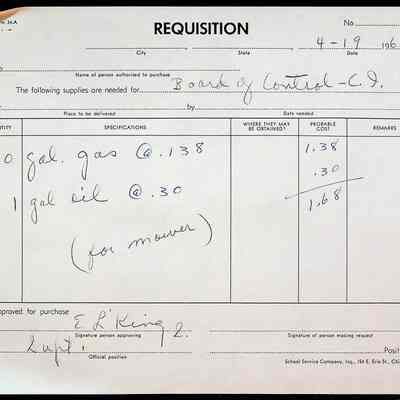 REQUISITION
No
City State
4-19 196
Date
Name of person authorized to purchase
The following supplies are needed for Board of Control - C.I.
by
Place to be delivered Date needed
NTITY SPECIFICATIONS WHERE THEY MAY BE OBTAINED? PROBABLE COST REMARKS
0 gal. gas @ .138 1.38
1 gal oil @ .30 .30
1.68
(for mower)
pproved for purchase
E L King
Signature person approving Signature of person making request
Supt.
Official position Posit
School Service Company, Inc., 154 E. Erie St., Chi